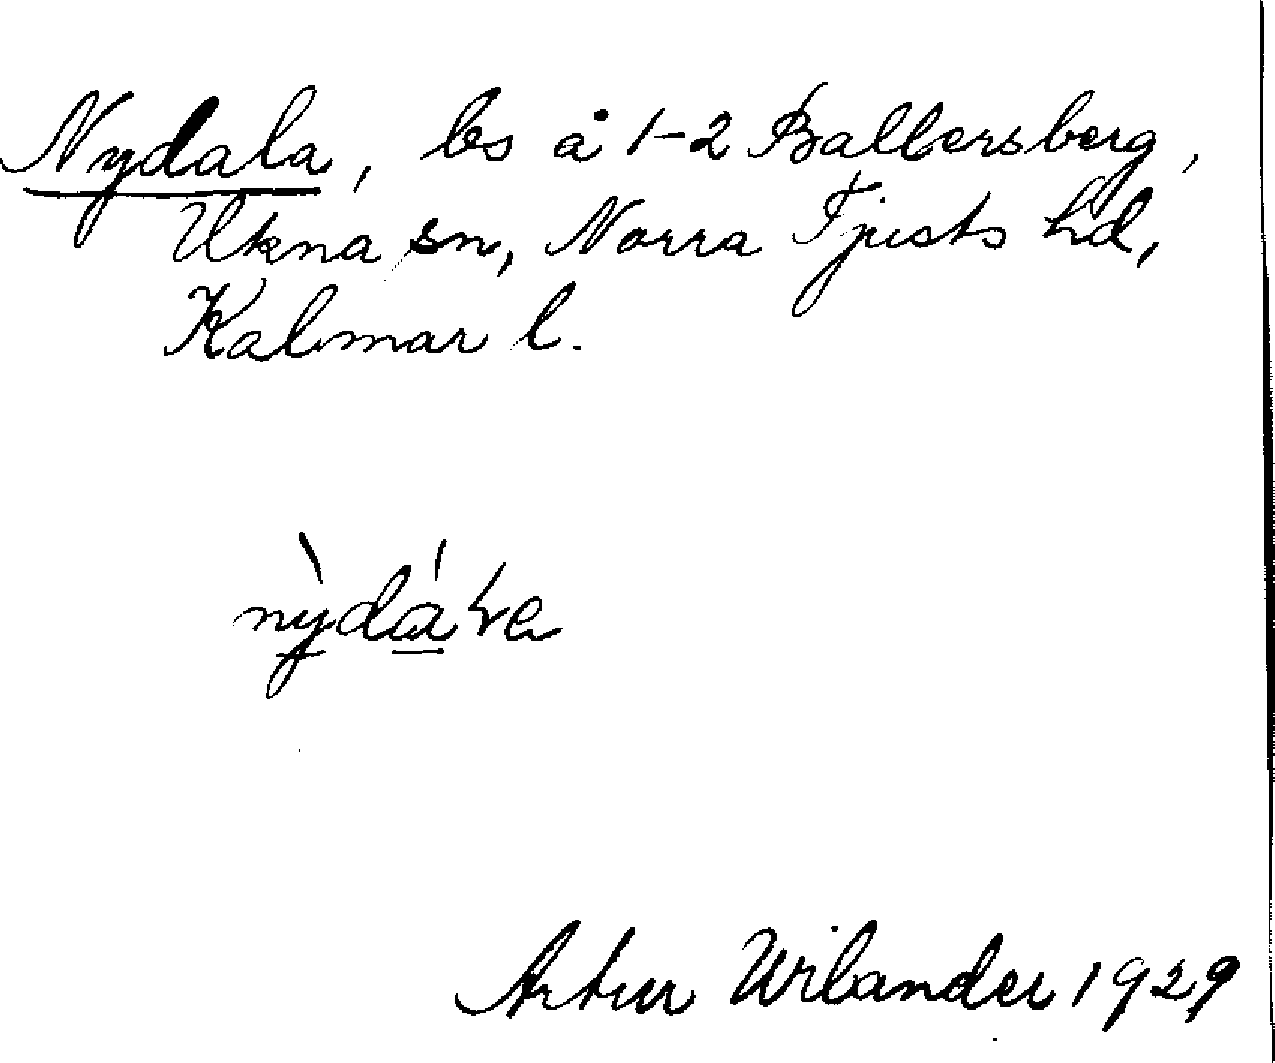 Nydala, ls å 1-2 Ballersberg,
Ukna sn, Norra Tjusts hd,
Kalmar l.
Artur Wilander 1929